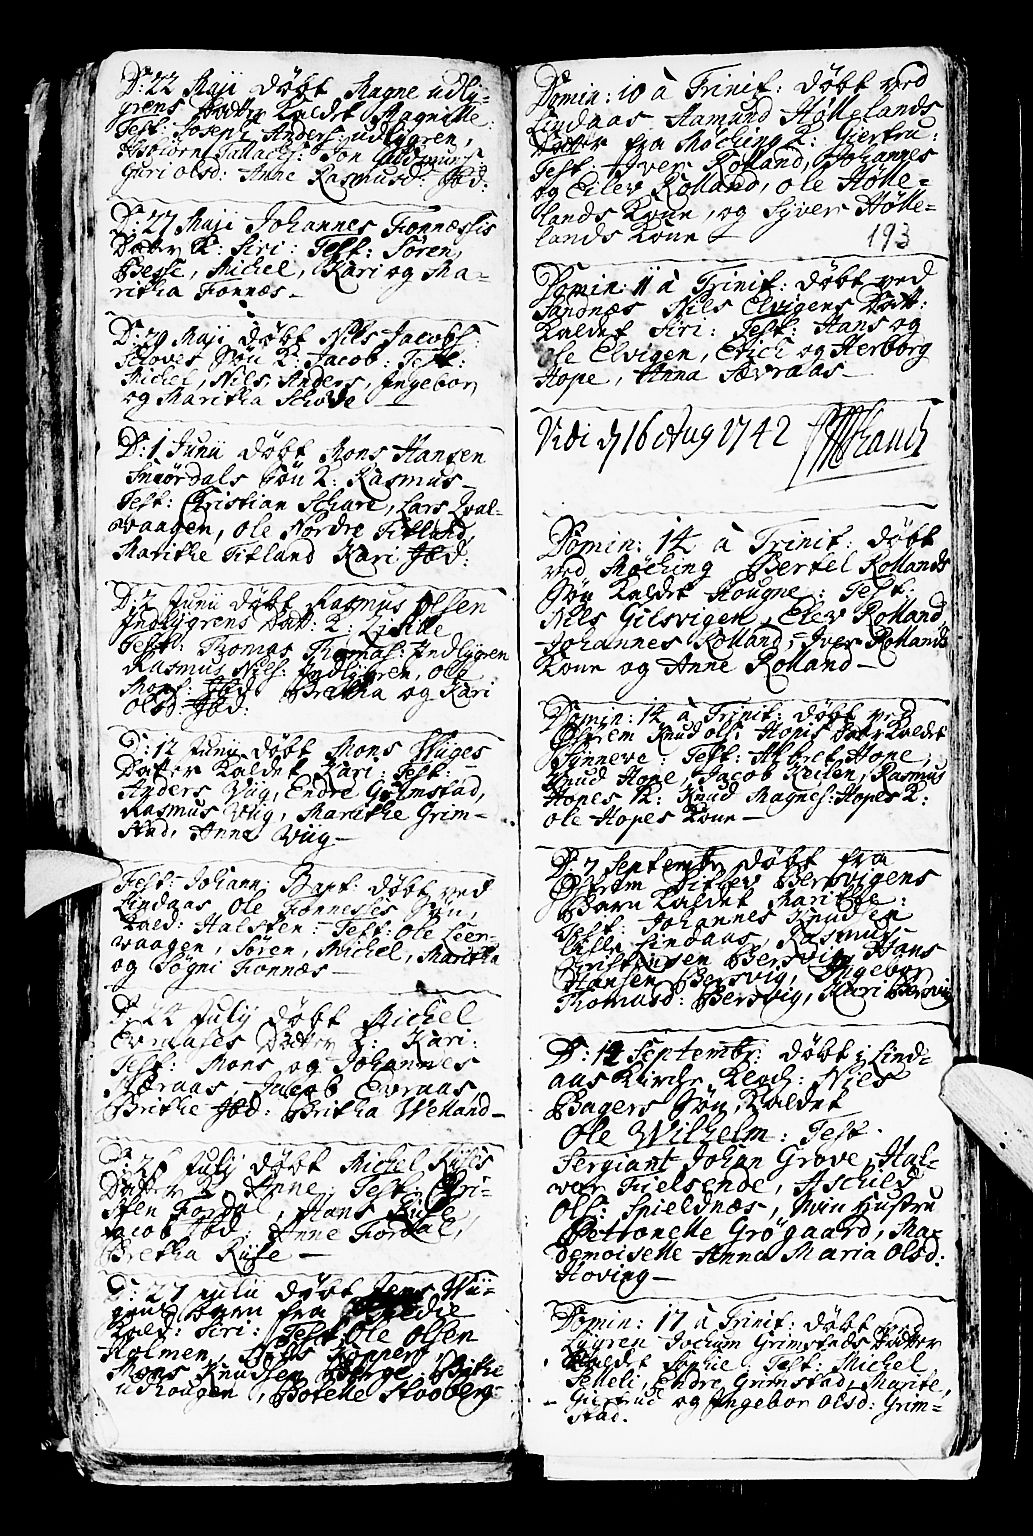 D: 22 Maji døbt Magne udly-
grens Datter Kaldet Magnille:
Test: Joseph Anders: udlygren,
Asbiørn Sallachs: Søn
Guri Olsd: Anne Rasmusd: Ibd:
D: 27 Maji Johannes Fonnæssis
Datter K: Siri: Test: Søren,
Besse, Michel, Kari og Ma-
ritha Fonnæs –
D: 29 Maji døbt Nils Jacobs:
Schoves Søn K: Jacob: Test:
Michel, Nils, Anders, Ingebor
og Maritha Schove –
D: 1 Junii døbt Mons Hansen
Smørdals Søn K: Rasmus –
Test: Christian Schare, Lars Qval-
vaagen, Ole Nordre Titland,
Marithe Titland Kari Ibd:
D: 2 Junii døbt Rasmus Olsen
Indlygrens Datt: K:
Test: Thomas Thomas: Indlygren
Rasmus Nils: Indlygren, Ole
Mons: Ibd Bretha og Kari
Olsd: Ibd:
D: 12 Junii døbt Mons Wiiges
Datter Kaldet Kari: Test:
Anders Wiig, Endre Grimstad,
Rasmus Wiig, Marithe Grim-
stad, Anna Wiig –
Fest: Johann: Bapt: døbt ved
Lindaas Ole Fonnesses Søn,
Kald: Halsten: Test: Ole Leer-
vaagen, Søren, Michel, Maritha
og Søgni Fonnæs –
D: 22 Julij døbt Michel
Evraases Datter K: Kari:
Test: Mons og Johannes
Særaas, Jacob Evraas,
Brithe Ibd: Britha Welland –
D: 26 Julij døbt Michel Ryses
Datter K: Anne: Test: Chri-
sten Fordal, Hans Ryse,
Jacob Ibd Anne Fordal,
Bretha Ryse –
D: 27 Julii døbt Jens Wii-
gens Barn fra
Kald: Siri: Test: Ole Olsen
Holmen,
Mons Knudsen Berge, Brithe
udhougen, Botelle Stooberg –
Domin: 10 à Trinit: døbt ved
Lindaas Hamund Høllelands
Datter fra Møching K: Giertru:
Test: Iver Rolland, Johannes
og Eilev Rolland, Ole Hølle-
lands Kone, og Syver Hølle-
lands Kone –
193
Domin: 11 à Trinit: døbt ved
Sandnæs Nils Elvigens Datt:
Kaldet Siri: Test: Hans og
Ole Elvigen, Erich og Herborg
Hope, Anna Sævraas –
Vidi d 16 Aug 1742
Domin: 14 à Trinit: døbt
ved Møching Bertel Rollands
Søn Kaldet Hougne: Test:
Nils Gilsvigen, Elev Rolland
Johannes Rolland, Iver Rollands
Kone og Anne Rolland –
Domin: 14 à Trinit: døbt ved
Østrem Knud Ols: Hopis Datter Kaldet
Synneve: Test: Albret Hope,
Knud Hope, Jacob Keilen, Rasmus
Hopes K: Knud Magnes: Hopes K:
Ole Hopes Kone –
D: 7 Septembr døbt fra
Østrem Ditlev Bersvigens
Barn Kaldet Marithe:
Test: Johannes Knudsen
Lindaas, Rasmus
Christensen Bersvig, Hans
Hansen Bersvig, Ingebor
Thomasd: Bersvig, Kari Bersvig
D: 12 Septembr: døbt i Lind-
aas Kirche Kloch: Niels
Bagers Søn, Kaldet
Ole Wilhelm: Test:
Sergiant Johan Grove, Hal-
vor Fielsende, Aschild
Ols: Spieldnæs, Min Hustru
Petronelle Grøgaard, Ma-
demoiselle Anna Maria Olsd:
Hoving –
Domin: 17 à Trinit: døbt ved
Lygren Jochum Grimstads Datter
Kaldet Sophie: Test: Michel
Felleli, Endre Grimstad, Marite,
Giertrud og Ingebor Olsd: Grim-
stad.